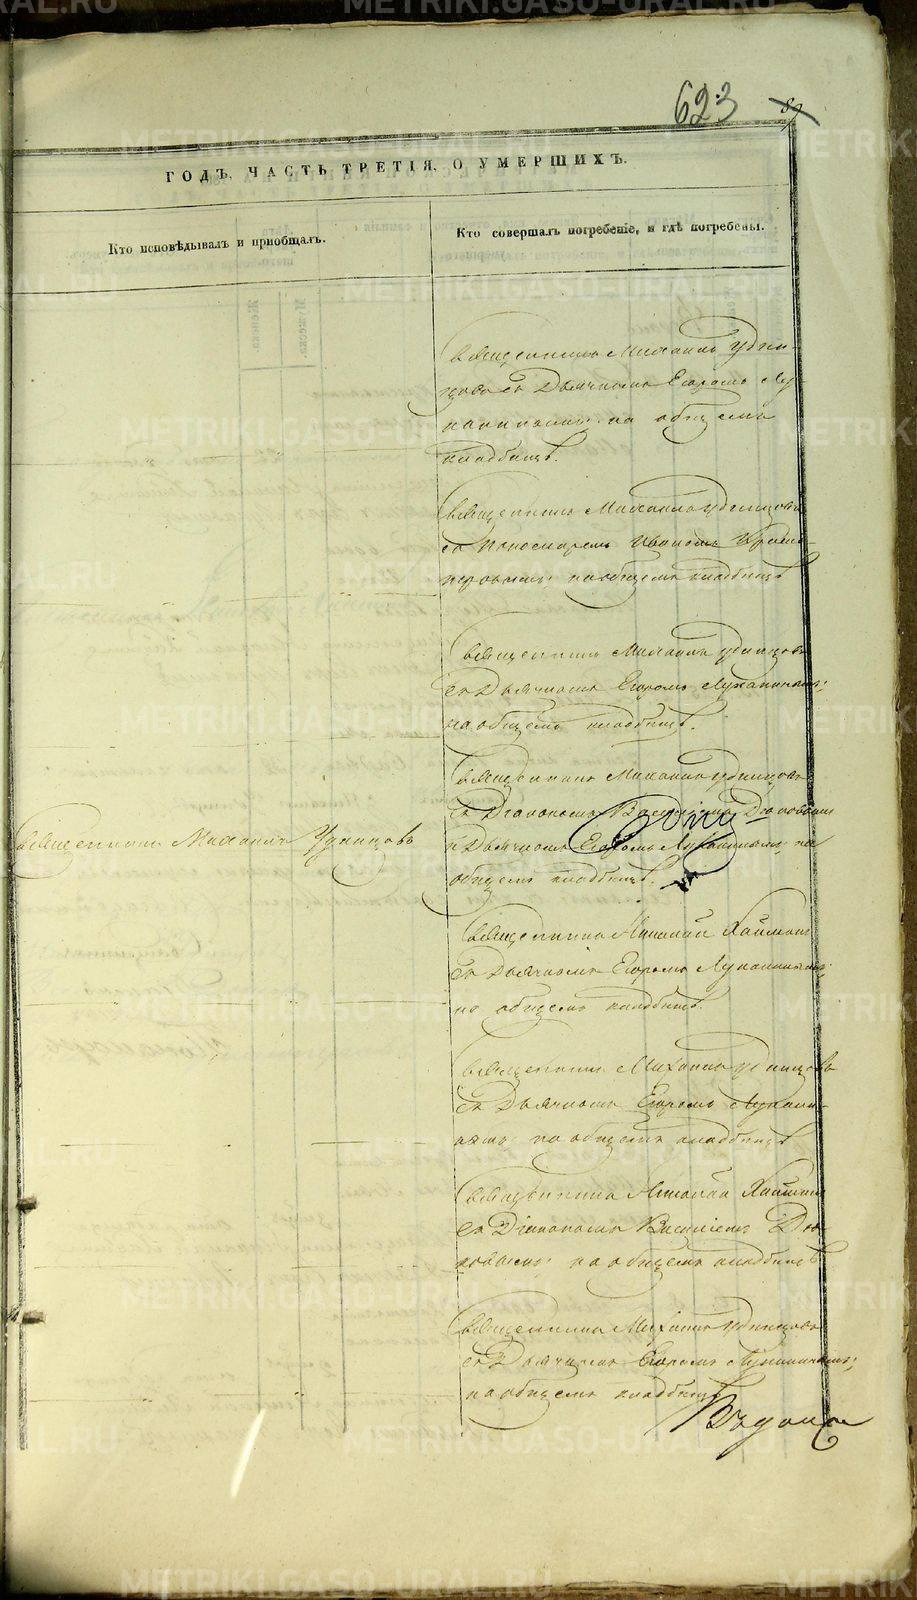 623
ГОДЪ. ЧАСТЬ ТРЕТІЯ, О УМЕРШИХЪ.
Кто исповѣдывалъ и пріобщалъ.
Кто совершалъ погребеніе, и гдѣ погребены.
Священникъ Михаилъ Удин-
цовъ съ Дьячкомъ Егоромъ Лу
каниномъ; на общемъ
кладбищѣ.
Священникъ Михаилъ Удинцовъ
съ Пономаремъ Иваномъ
на общемъ кладбищѣ
Священникъ Михаилъ Удинцовъ
съ Дьячкомъ Егоромъ Луканинымъ;
на общемъ кладбищѣ.
Священникъ Михаилъ Удинцовъ
съ Діакономъ Василіемъ
Священникъ Михаилъ Удинцовъ
и Дьячкомъ Егоромъ Луканинымъ; на
общемъ кладбищѣ.
Священникъ Николай
съ Дьячкомъ Егоромъ Луканинымъ;
на общемъ кладбищѣ.
Священникъ Михаилъ Удинцовъ
съ Дьячкомъ Егоромъ Лукани-
нымъ; на общемъ кладбищѣ
Священникъ Николай
съ Діакономъ Василіемъ
на общемъ кладбищѣ
Священникъ Михаилъ Удинцовъ
съ Дьячкомъ Егоромъ Луканинымъ;
на общемъ кладбищѣ
METRIKI.GASO-URAL.RU